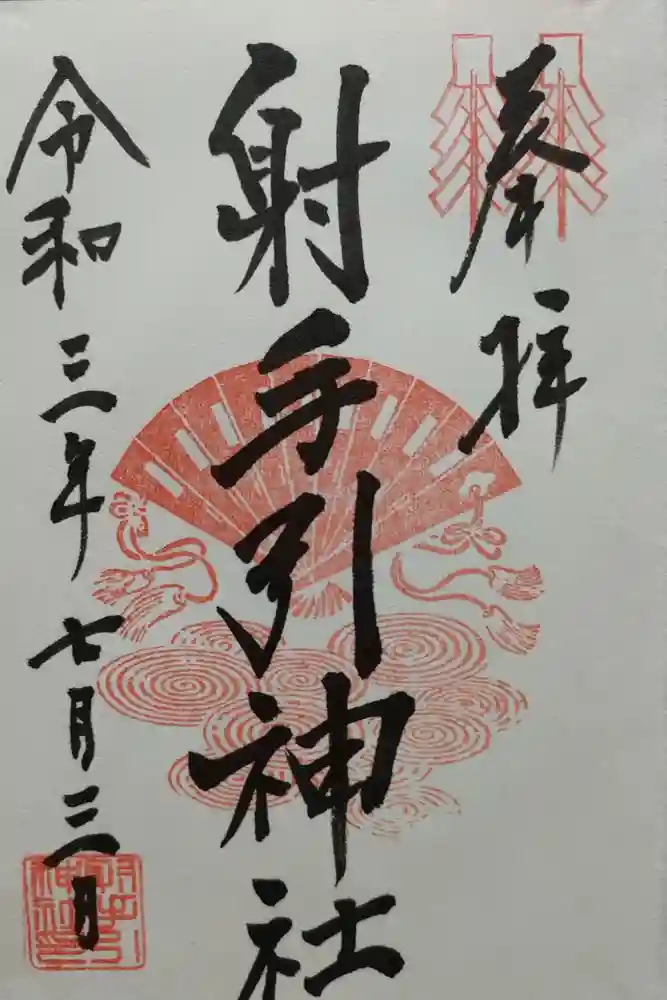 奉拝
射手引神社
令和三年七月三日